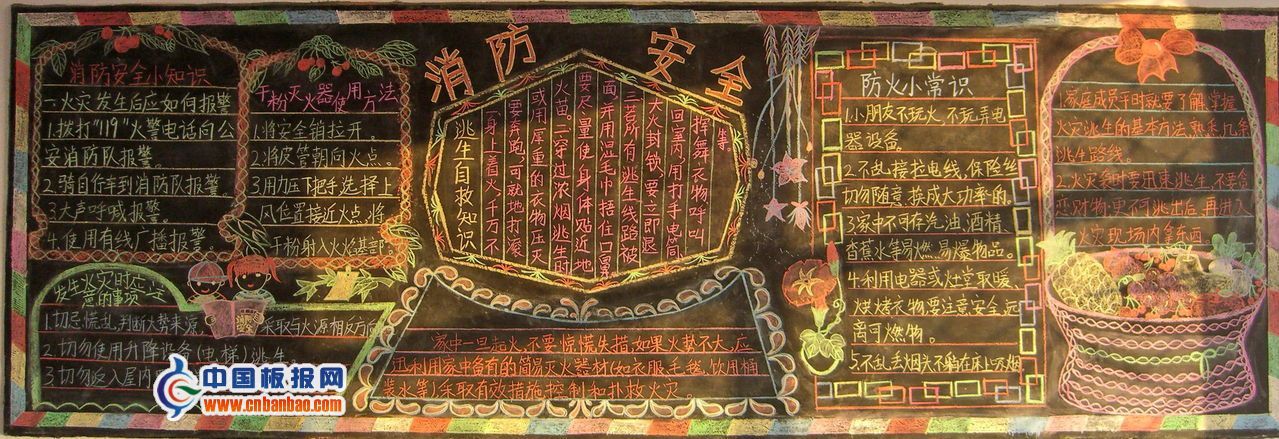 消防安全
消防安全小知识
一.火灾发生后应如何报警
1.拨打"119"火警电话向公
安消防队报警。
2.骑自行车到消防队报警。
3.大声呼喊报警。
4.使用有线广播报警。
干粉灭火器使用方法
1.将安全销拉开。
2.将皮管朝向火点。
3.用力压下把手,选择上
风位置接近火点,将
干粉射入火焰基部
发生火灾时应注
意的事项
1.切忌慌乱,判断火势来源,
采取与火源相反方向
2.切勿使用升降设备(电梯)逃生
3.切勿返入屋内
逃生自救知识
身上着火,千万不
要奔跑,可就地打滚
或用厚重的衣物压灭
火苗。二.穿过浓烟逃生时
要尽量使身体贴近地
面,并用湿毛巾捂住口鼻
三.若所有逃生线路被
大火封锁,要立即退
回室内,用打手电筒
挥舞衣物呼叫
等
家中一旦起火,不要惊慌失措,如果火势不大,应
迅速利用家中备有的简易灭火器材(如衣服毛毯,饮用桶
装水等)采取有效措施控制和扑救火灾
防火小常识
1.小朋友不玩火,不玩弄电
器设备。
2.不乱接拉电线,保险丝
切勿随意换成大功率的。
3.家中不可存汽油,酒精,
香蕉水等易燃.易爆物品。
4.利用电器或灶堂取暖
烘烤衣物,要注意安全,远
离可燃物。
5.不乱丢烟头不躺在床上吸烟
1.家庭成员平时就要了解掌握
火灾逃生的基本方法,熟悉几条
逃生路线。
2.火灾袭时要迅速逃生,不要贪
恋财物,更不可逃出后再进入
火灾现场内拿东西
中国板报网
www.cnbanbao.com